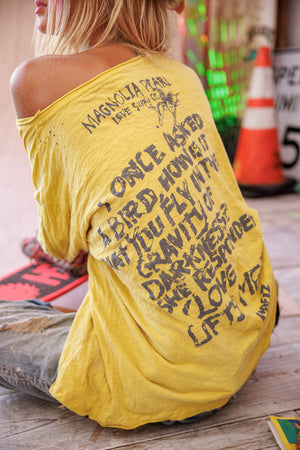 MAGNOLIA PEARL
LOVE
I ONCE ASKED
A BIRD HOW IS IT
THAT YOU FLY IN THIS
GRAVITY OF
DARKNESS?
HE RESPONDED
"LOVE
LIFTS ME"
HAFIZ
SPEE